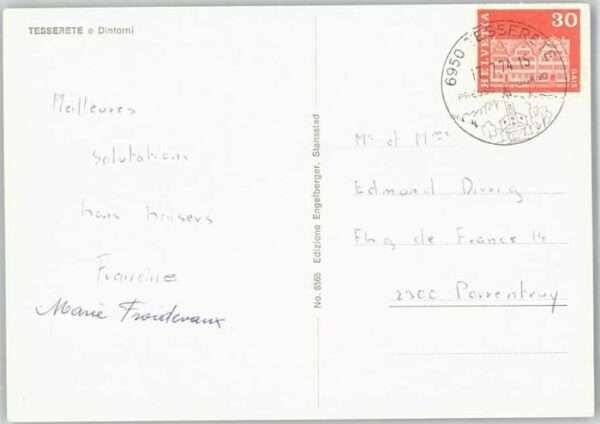 TESSERETE e Dintorni
Meilleures
salutations
bons baisers
Francine
Marie Froidevaux
No. 8565 Edizione Engelberger, Stansstad
6950 TESSERETE
HELVETIA
30
Mr et Mme
Edmond
Fbg de France 14
2900 Porrentruy